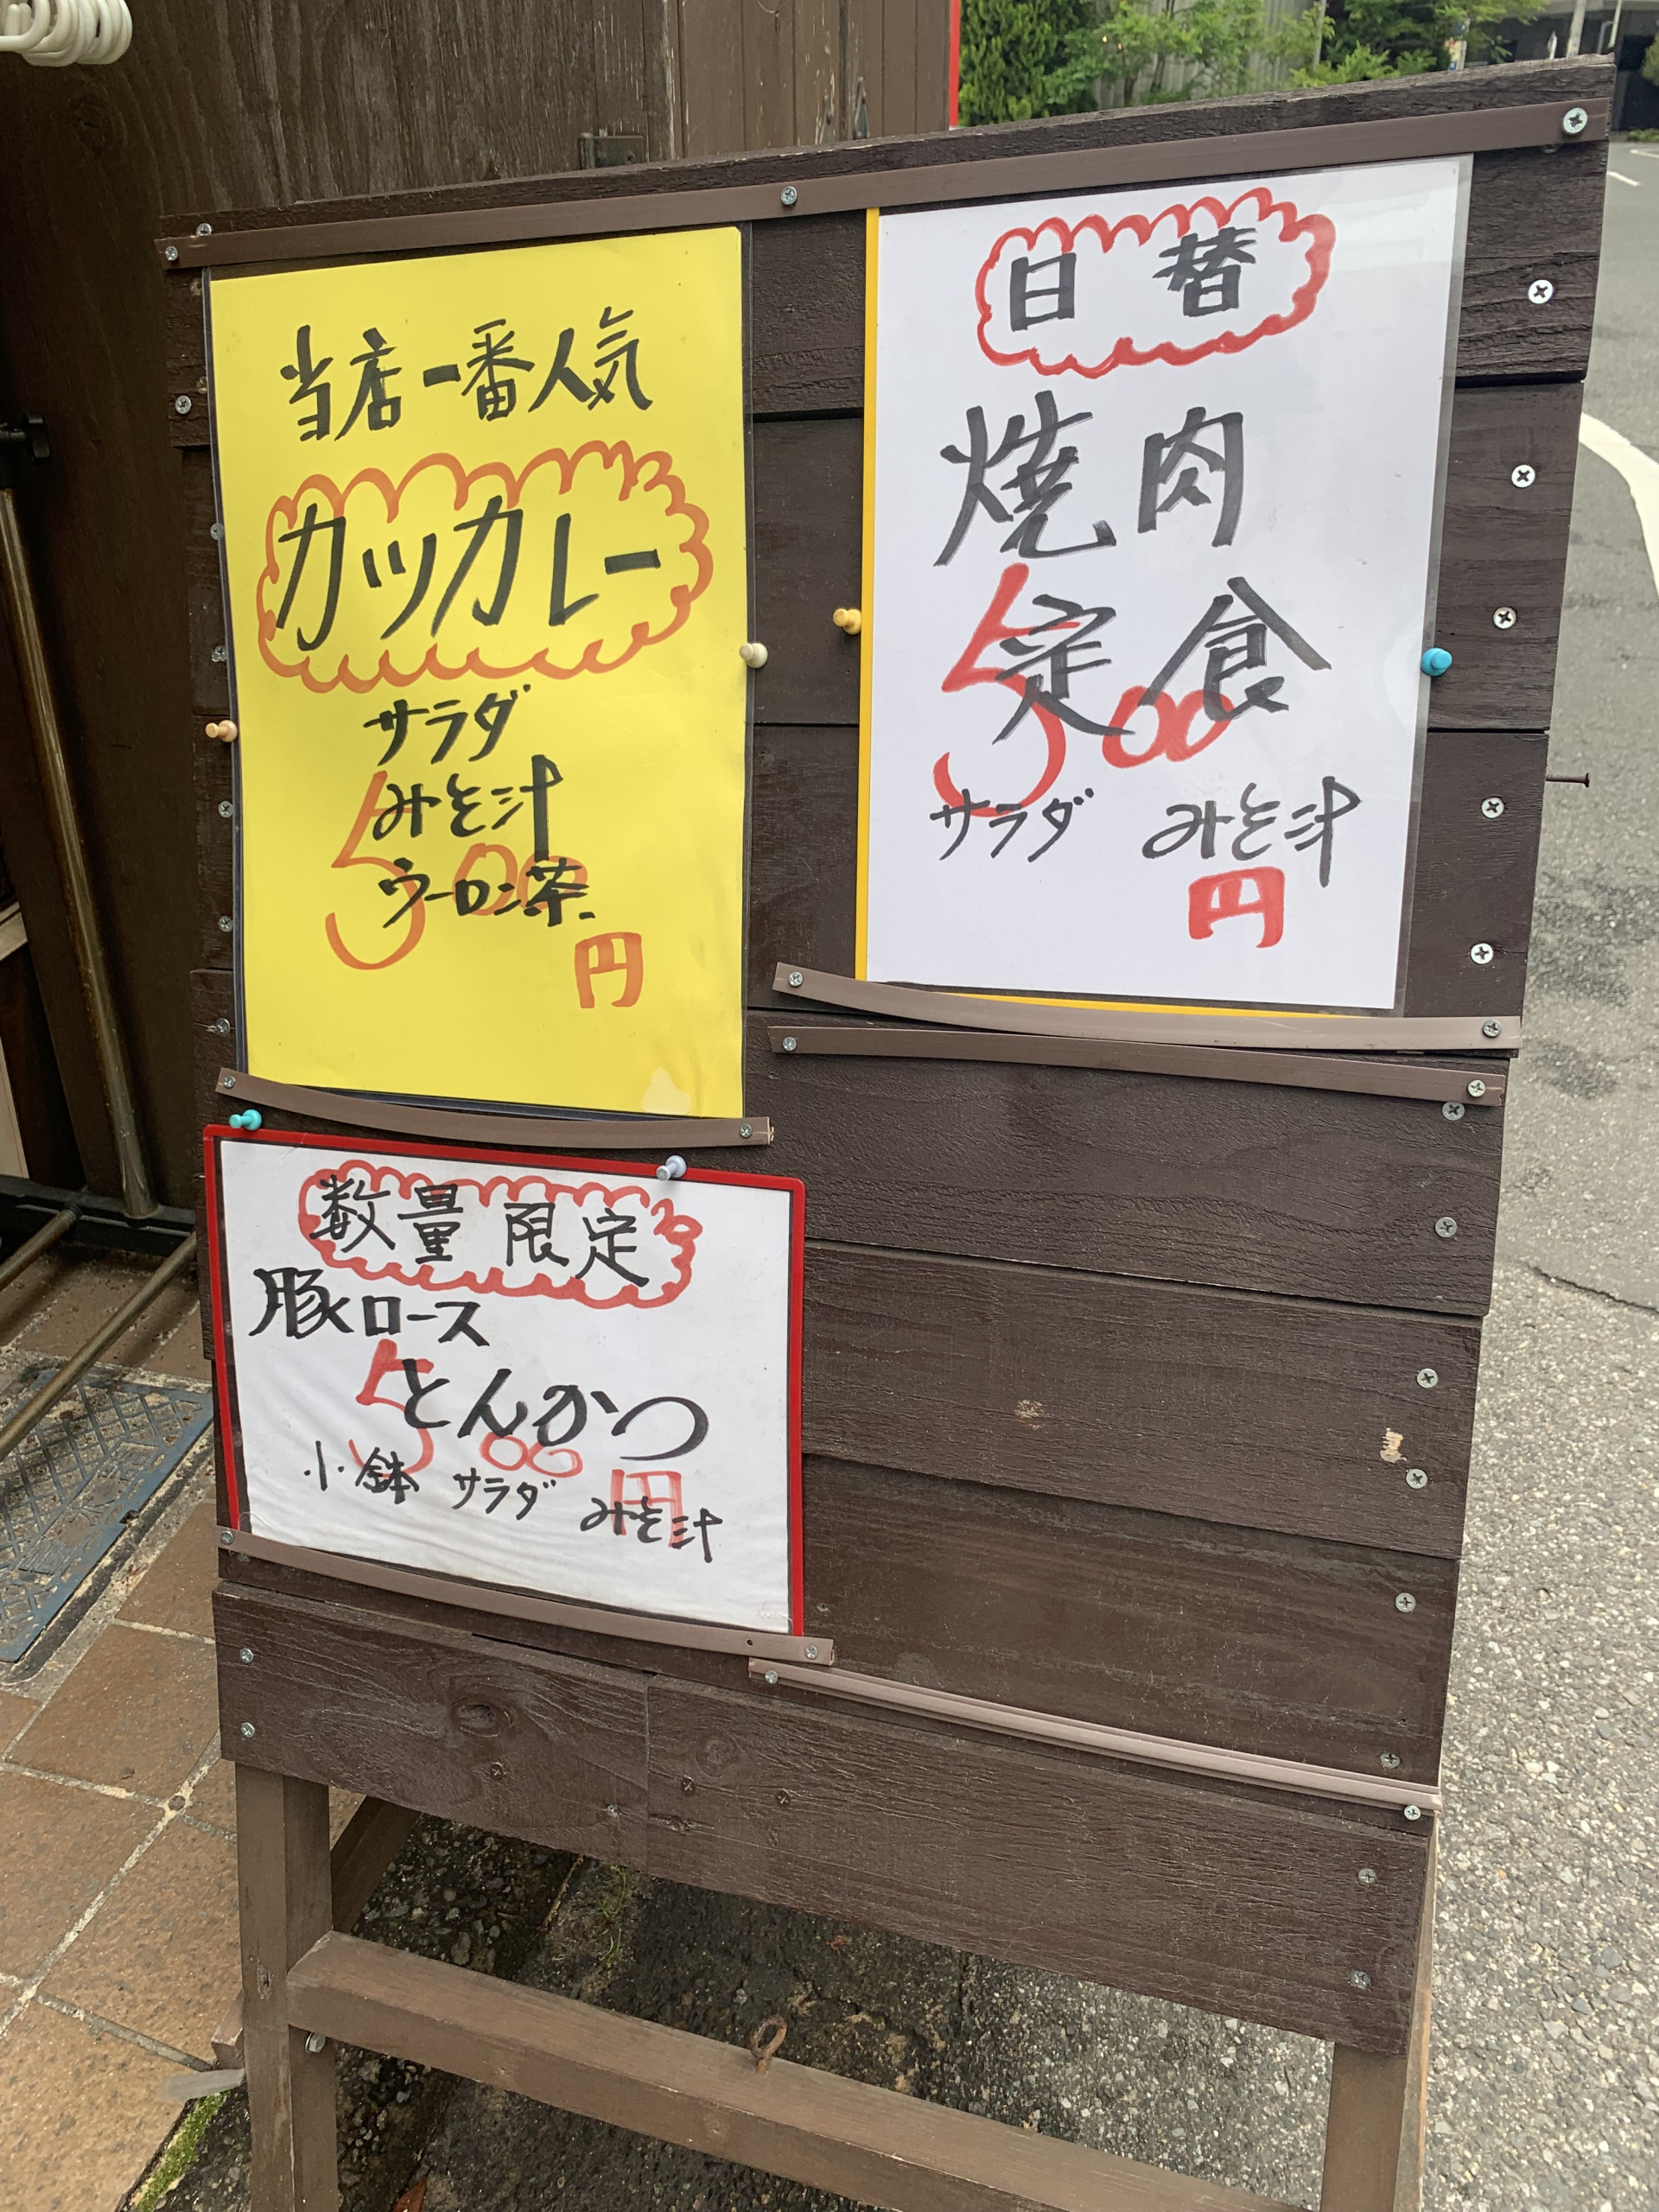 当店一番人気
カツカレー
サラダ
みそ汁
ウーロン茶
500
円
日替
焼肉
定食
500
サラダ みそ汁
円
数量限定
豚ロース
とんかつ
500円
小鉢 サラダ みそ汁